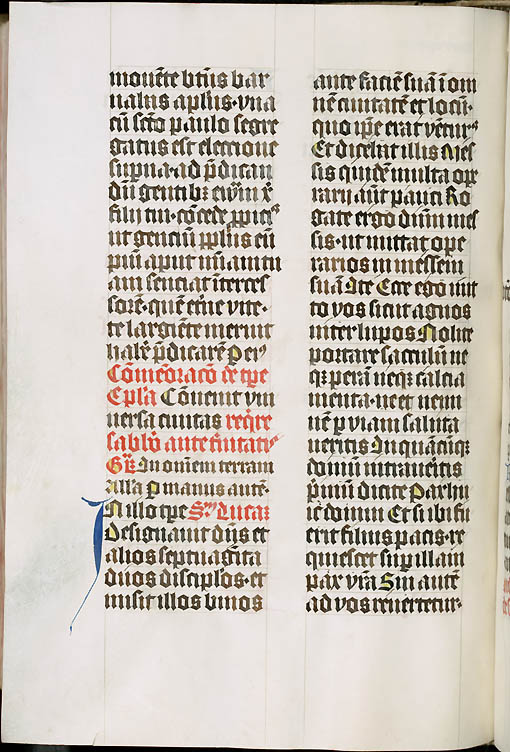 movēte btūs bar
nabas apl'us. vna
cū scto paulo segre
gatus est electione
superna. ad p̄dican
dū gentibꝫ ewm xp̄i
filii tui. cōcede
ut gentiū ppl'us
am sentiat interces
sorē. quē
te largiēte meruit
habe' p̄dicare. Per
Cōmemoracō de tpe
Ep'la Cōvenit vni
versa civitas reqre
sabb'o ante civitatē
Gr̄. In omnem terram
Alla Per manus autē.
In illo tpe Scd'm Lucaꝫ
Designavit dn̄s et
alios septuaginta
duos discipl'os. et
misit illos binos
ante faciē suā ī om
nē civitatē et locū.
quo ipse erat vētur9
Et dicebat illis Mes
sis quidē multa ope
rarij aūt pauci Ro
gate ergo dūm mes
sis. ut mittat ope
rarios in messem
suā Ite Ecce ego mit
to vos sicut agnos
inter lupos Nolite
portare sacculū ne
qꝫ perā neqꝫ calcia
menta. neqꝫ nemi
nē p viam saluta
veritis In quācūqꝫ
domū intraveritis
p̄mū dicite Pax hu
ic domui Et si ibi fu
erit filius pacis. re
quiescet sup illam
pax vr̄a Sin autē
ad vos revertetur.